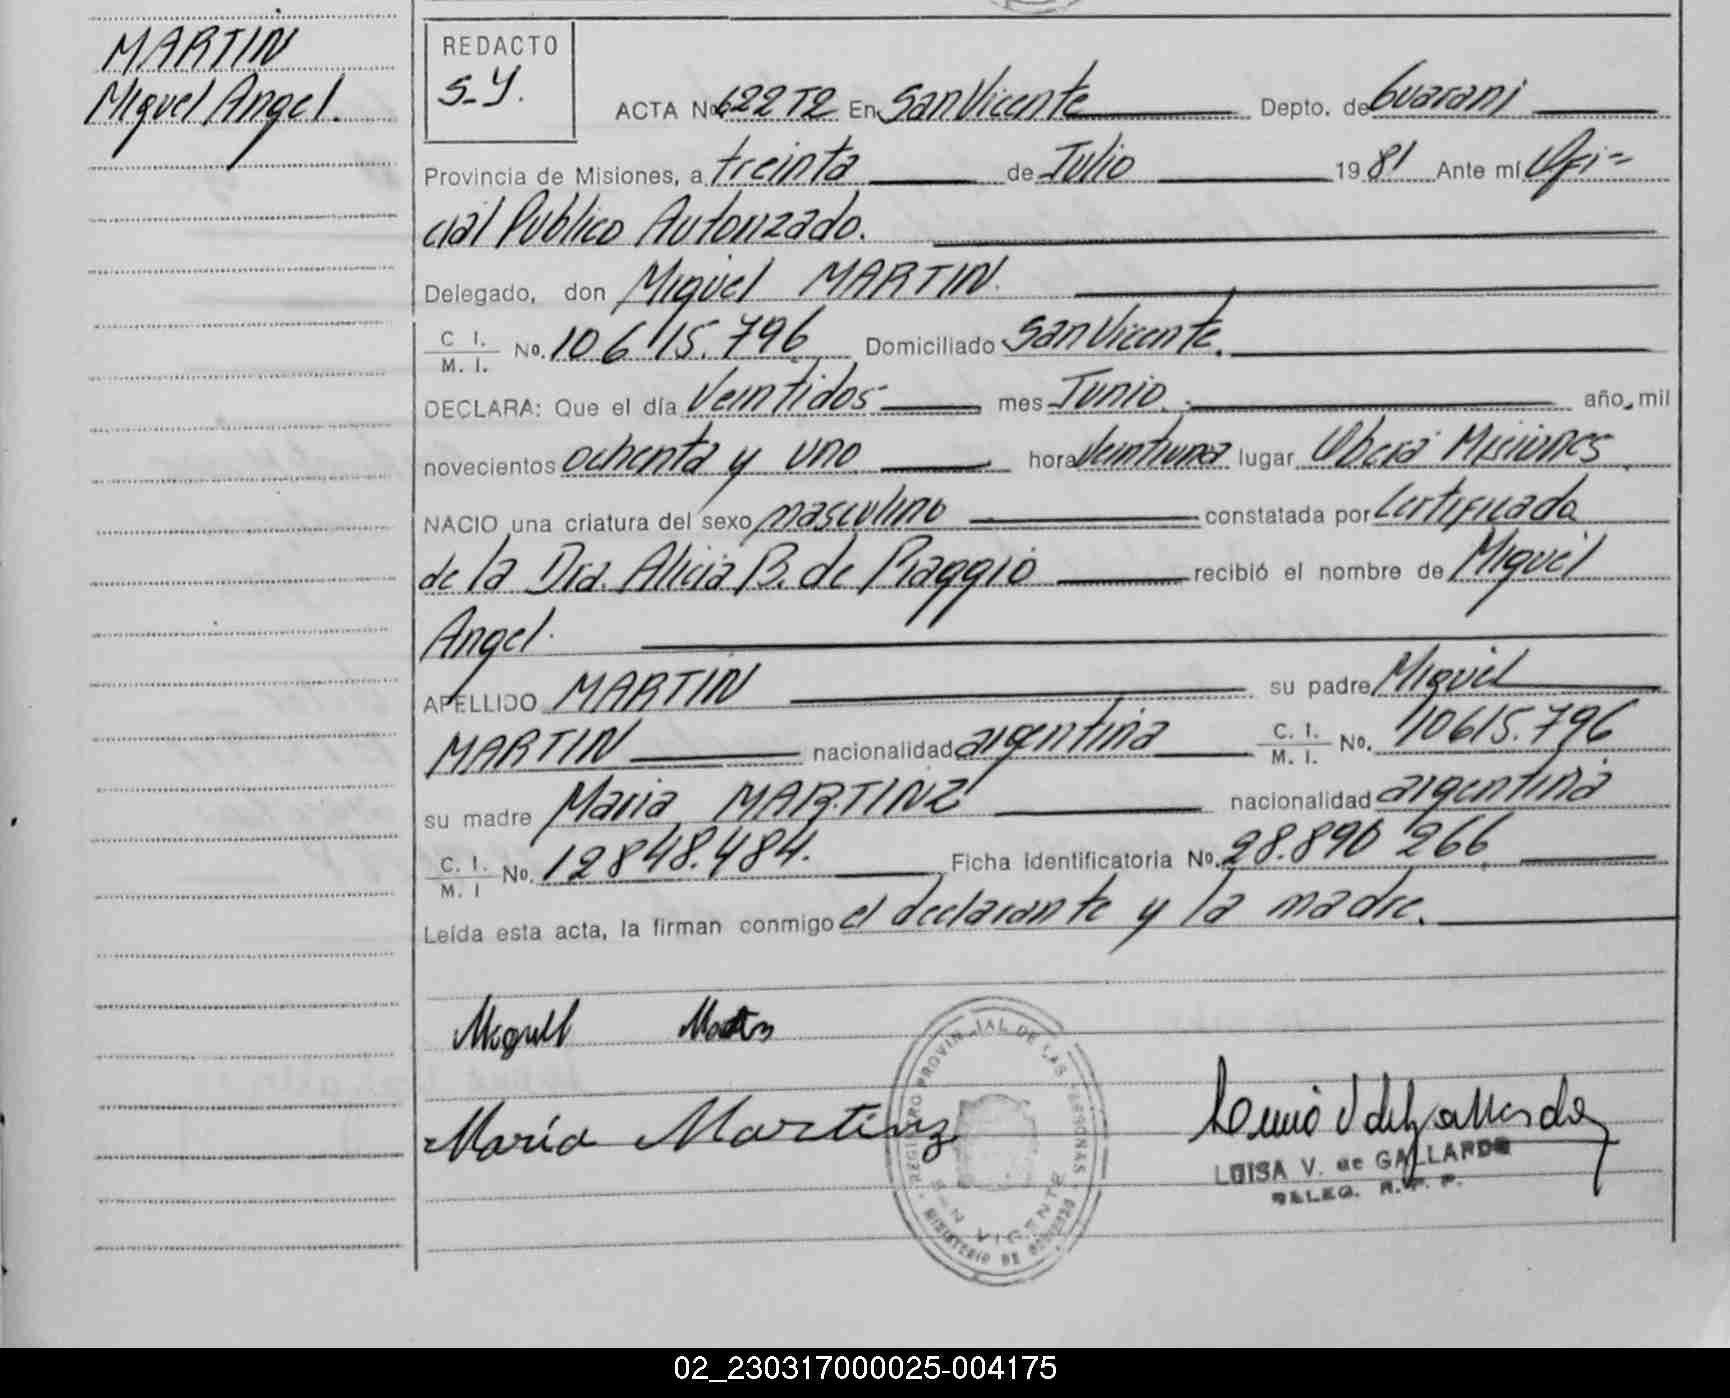 MARTIN
Miguel Angel.
REDACTO
S-Y.
ACTA No 622T2 En San Vicente Depto. de Guarani
Provincia de Misiones, a treinta de Julio 1981 Ante mí Ofi=
cial Publico Autorizado.
Delegado, don Miguel MARTIN.
C I. M. I. No. 10615.796 Domiciliado San Vicente.
DECLARA: Que el día Veintidos mes Junio. año, mil
novecientos ochenta y uno hora Veintiuna lugar Oberá Misiones
NACIO una criatura del sexo masculino constatada por Certificada
de la Dra. Alicia B. de Piaggio recibió el nombre de Miguel
Angel.
APELLIDO MARTIN su padre Miguel
MARTIN nacionalidad argentina C. I. M. I. No. 10615.796
su madre Maria MARTINZ nacionalidad argentina
C. I. M. I No. 12848.484. Ficha identificatoria No. 28.890 266
Leída esta acta, la firman conmigo el declarante y la madre.
Miguel
María Martinz
REGISTRO PROVINCIAL DE LAS PERSONAS
SAN VICENTE
MINISTERIO DE GOBIERNO
LUISA V. de GALLARDO
DELEG. R. P. P.
02_230317000025-004175